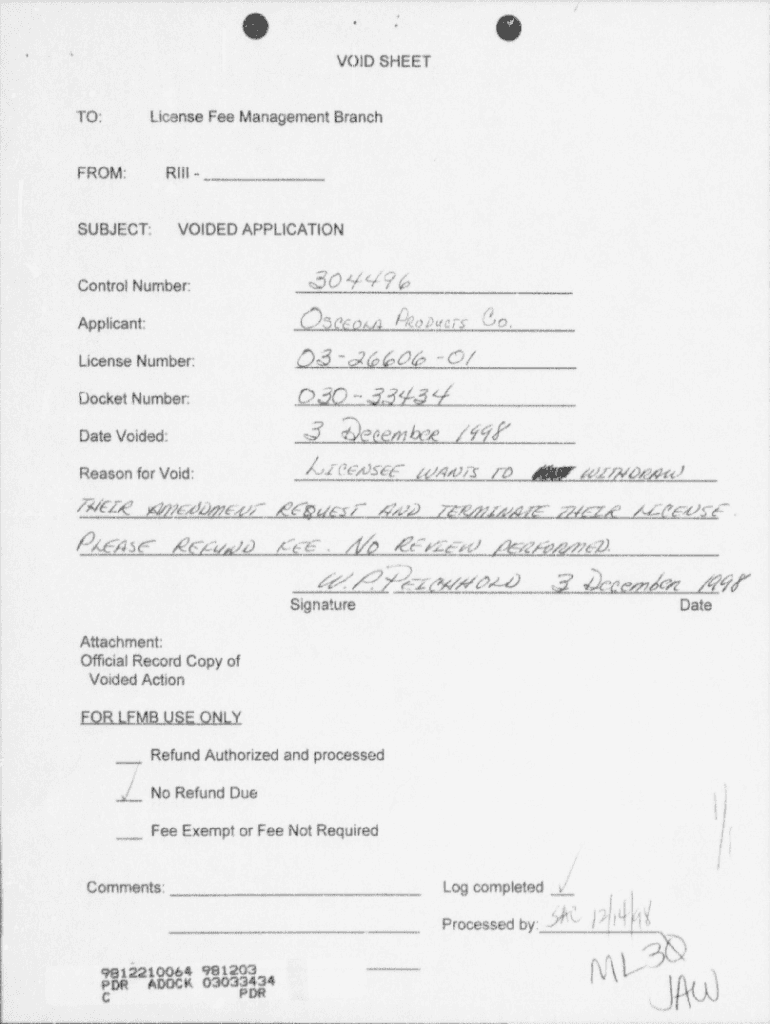 VOID SHEET
TO: License Fee Management Branch
FROM: RIII - ____________
SUBJECT: VOIDED APPLICATION
Control Number: 304496
Applicant: OSCEOLA PRODUCTS Co.
License Number: 03-26606-01
Docket Number: 030-33434
Date Voided: 3 December 1998
Reason for Void: LICENSEE WANTS TO WITHDRAW
THEIR AMENDMENT REQUEST AND TERMINATE THEIR LICENSE.
PLEASE REFUND FEE. NO REVIEW PERFORMED.
W.P. REICHHOLD 3 December 1998
Signature Date
Attachment:
Official Record Copy of
Voided Action
FOR LFMB USE ONLY
___ Refund Authorized and processed
✓ No Refund Due
___ Fee Exempt or Fee Not Required
Comments: ____________ Log completed ✓
Processed by: SAC 12/14/98
ML30
JAW
9812210064 981203
PDR ADOCK 03033434
C PDR